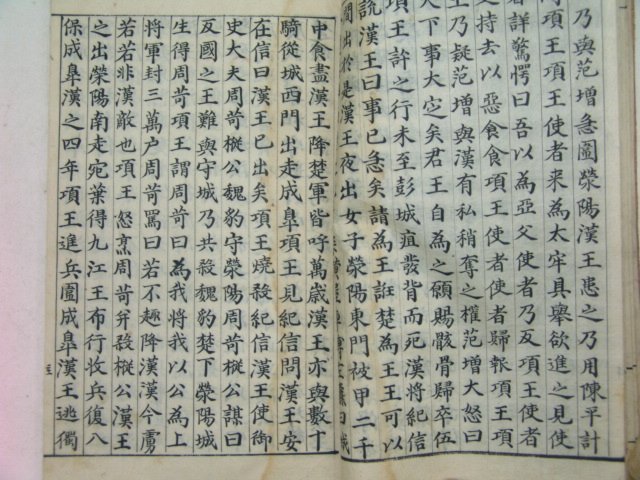 乃與范增急圍滎陽漢王患之乃用陳平計
間項王項王使者来為太牢具舉欲進之見使
者詳驚愕曰吾以為亞父使者乃反項王使者
更持去以惡食食項王使者使者歸報項王項
王乃疑范增與漢有私稍奪之權范增大怒曰
天下事大定矣君王自為之願賜骸骨歸卒伍
項王許之行未至彭城疽發背而死漢將紀信
說漢王曰事已急矣請為王誑楚為王王可以
間出於是漢王夜出女子滎陽東門被甲二千
中食盡漢王降楚軍皆呼萬歲漢王亦與數十
騎從城西門出走成皐項王見紀信問漢王安
在信曰漢王已出矣項王燒殺紀信漢王使御
史大夫周苛樅公魏豹守滎陽周苛樅公謀曰
反國之王難與守城乃共殺魏豹楚下滎陽城
生得周苛項王謂周苛曰為我將我以公為上
將軍封三萬户周苛罵曰若不趣降漢漢今虜
若若非漢敵也項王怒烹周苛并殺樅公漢王
之出滎陽南走宛葉得九江王布行收兵復入
保成皐漢之四年項王進兵圍成皐漢王逃獨